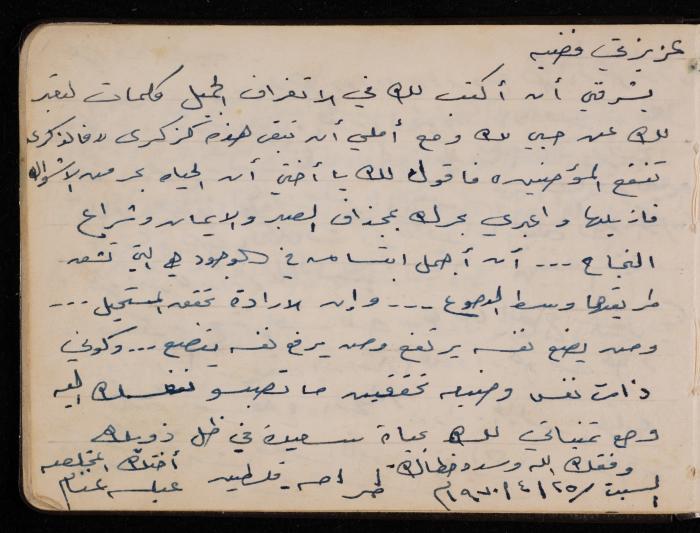 عزيزتي فضيه
يشرفني أن أكتب لك في الاتغراف الجميل كلمات لتعبر
لك عن حبي لك ومع أملي أن تبقى هذه كزكرى لا فالذكرى
تنفع المؤمنين فأقول لك يا أختي أن الحياه بحر من الاشواك
فازيليها واعبري بحرك بمجذاف الصبر والايمان وشراع
النجاح ... أن أجمل ابتسامه في الوجود هي التي تشق
طريقها وسط الدموع ... وإن الارادة تحقق المستحيل ...
ومن يضع نفسه يرتفع ومن يرفع نفسه يتضع ... وكوني
ذات نفس وضيعه تحققين ما تصبو نفسك اليه
ومع تمنياتي لك بحياة سعيدة في ظل ذويك
وفقك الله وسدد خطاك أختك المخلصه
السبت ٢٥/٤/١٩٧٠م فلسطين عبله غنام